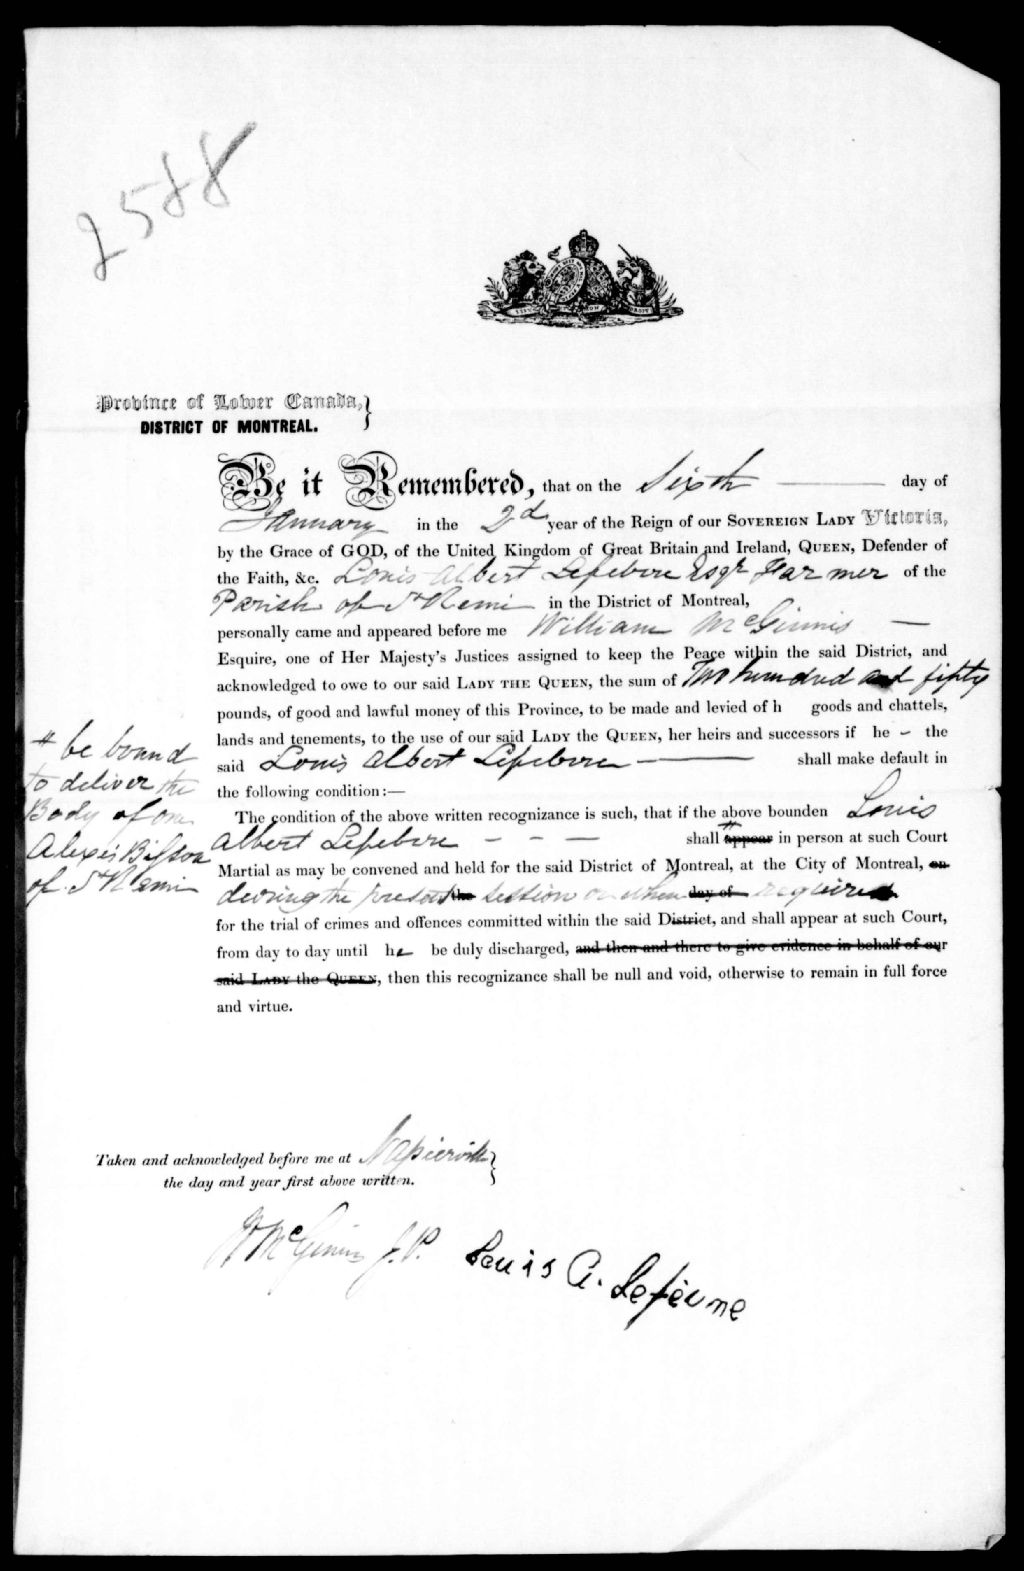 2588
Province of Lower Canada,
DISTRICT OF MONTREAL.
Be it Remembered, that on the Sixth day of
January in the 2d year of the Reign of our SOVEREIGN LADY Victoria,
by the Grace of GOD, of the United Kingdom of Great Britain and Ireland, QUEEN, Defender of
the Faith, &c. Louis Albert Lefebvre Esqr Farmer of the
Parish of St Remi in the District of Montreal,
personally came and appeared before me William McGinnis —
Esquire, one of Her Majesty's Justices assigned to keep the Peace within the said District, and
acknowledged to owe to our said LADY THE QUEEN, the sum of Two hundred and fifty
pounds, of good and lawful money of this Province, to be made and levied of h goods and chattels,
lands and tenements, to the use of our said LADY the QUEEN, her heirs and successors if he – the
said Louis Albert Lefebvre — shall make default in
the following condition:—
The condition of the above written recognizance is such, that if the above bounden Louis
Albert Lefebvre – – – shall # appear in person at such Court
# be bound
to deliver the
Body of one
Alexis Bisson
of St Remi
Martial as may be convened and held for the said District of Montreal, at the City of Montreal, on
during the present the session or when day of required
for the trial of crimes and offences committed within the said District, and shall appear at such Court,
from day to day until he be duly discharged, and then and there to give evidence in behalf of our
said LADY the QUEEN, then this recognizance shall be null and void, otherwise to remain in full force
and virtue.
Taken and acknowledged before me at Napierville
the day and year first above written.
W McGinnis J.P.
Louis A. Lefèvre